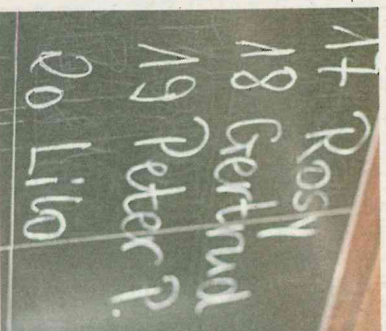 17 Rosy
18 Gertrud
19 Peter P.
20 Lilo